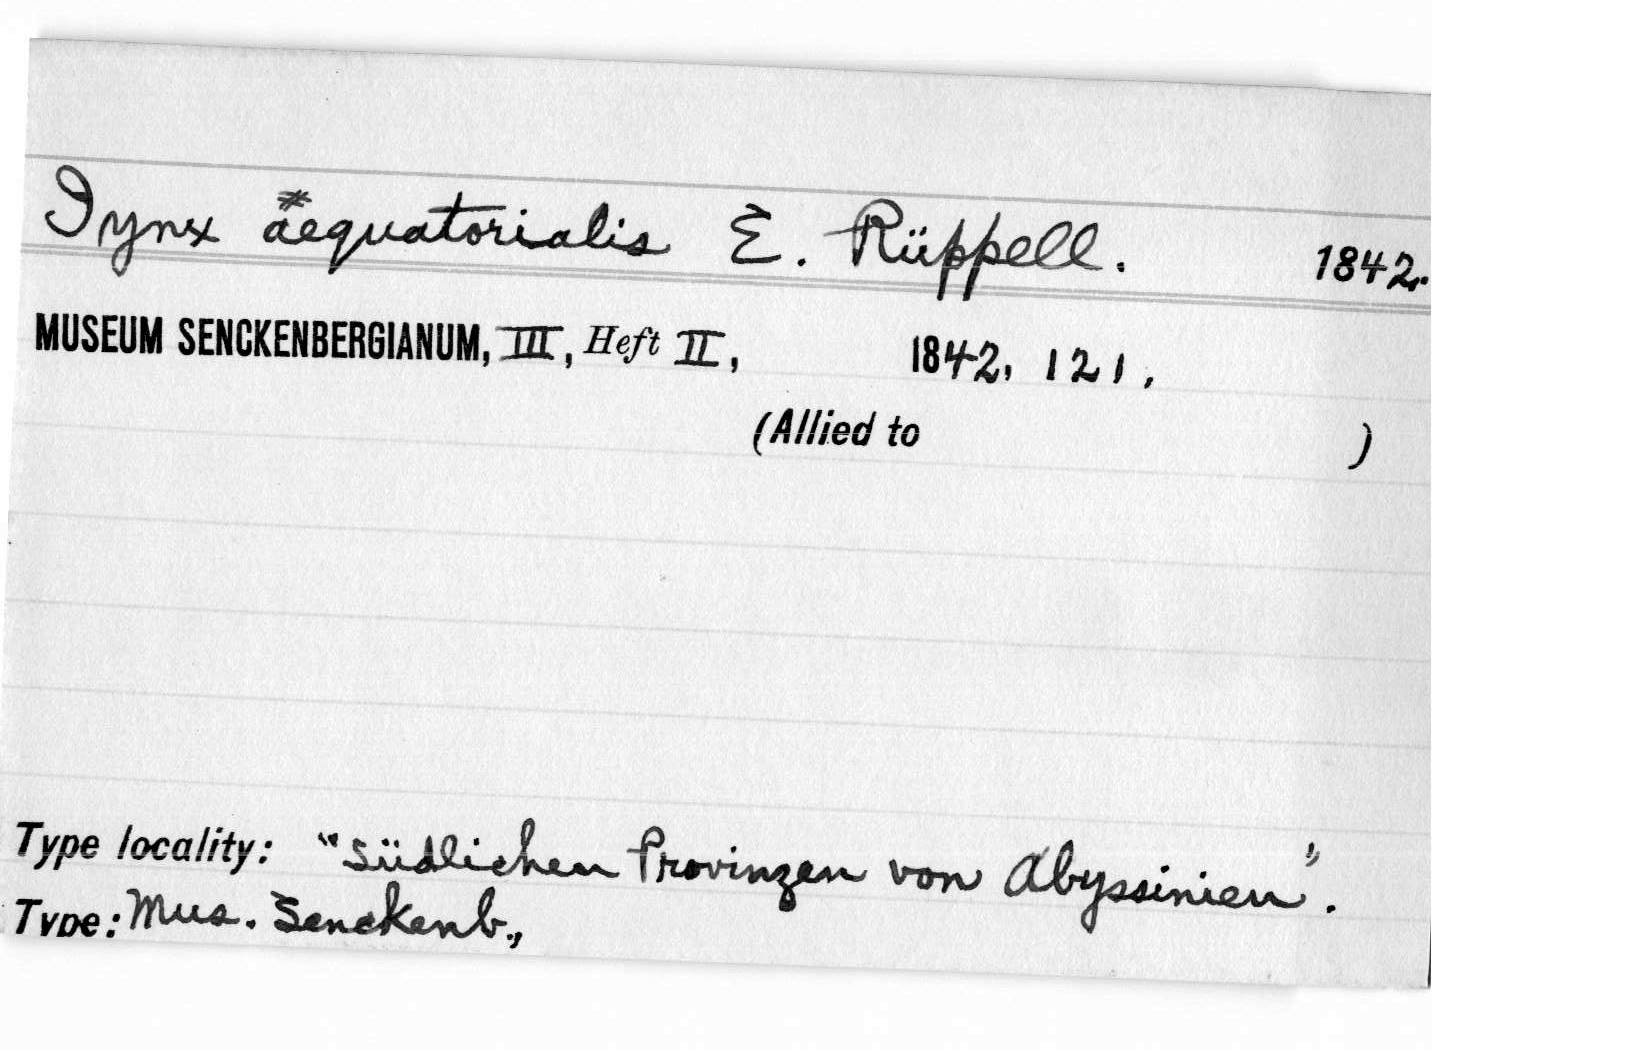 Iynx aequatorialis E. Rüppell. 1842.
MUSEUM SENCKENBERGIANUM, III, Heft II, 1842, 121,
(Allied to )
Type locality: "Südlichen Provinzen von Abyssinien".
Type: Mus. Senckenb.,